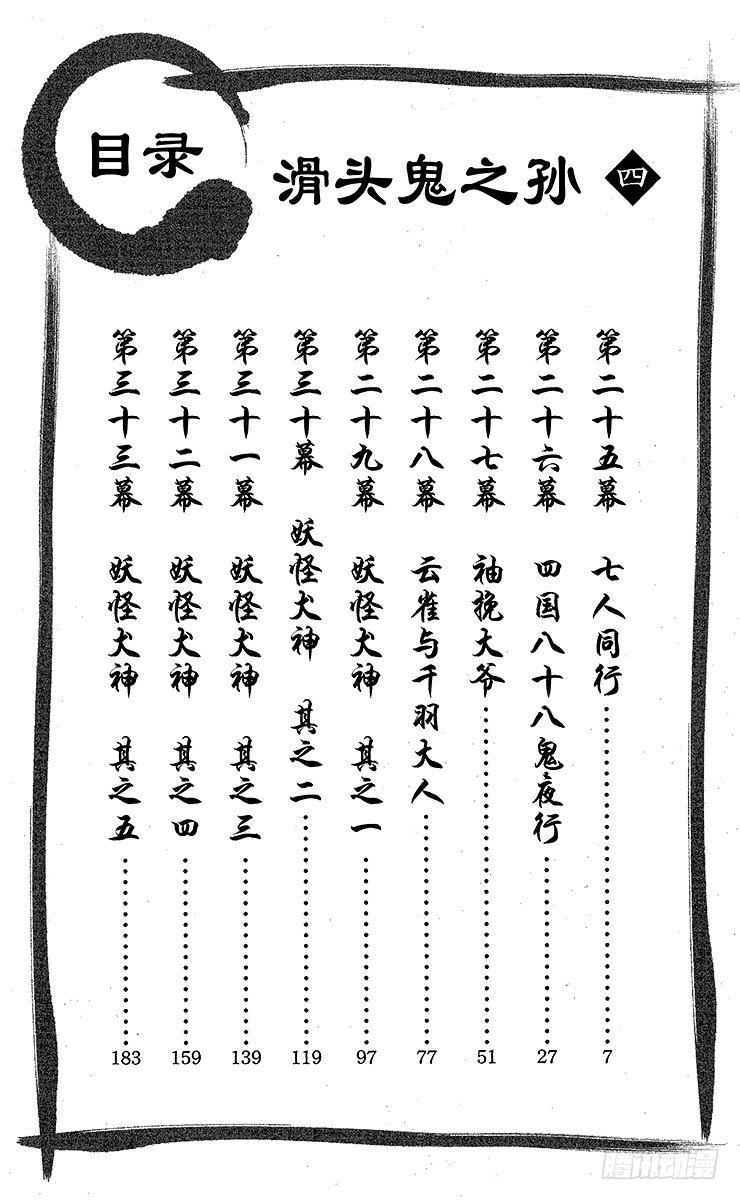 目录
滑头鬼之孙 四
第二十五幕 七人同行 7
第二十六幕 四国八十八鬼夜行 27
第二十七幕 袖挽大爷 51
第二十八幕 云雀与千羽大人 77
第二十九幕 妖怪犬神 其之一 97
第三十幕 妖怪犬神 其之二 119
第三十一幕 妖怪犬神 其之三 139
第三十二幕 妖怪犬神 其之四 159
第三十三幕 妖怪犬神 其之五 183
腾讯动漫